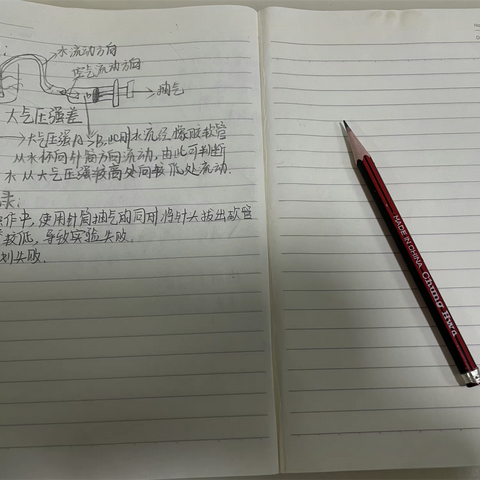 水流动方向
空气流动方向
抽气
大气压强差
→大气压强A>B,此时水流经橡胶软管
从水杯向针筒方向流动,由此可判断
水从大气压强较高处向较低处流动.
录:
作中,使用针筒抽气的同时,将针头拔出软管
较低,导致实验失败.
划失败.
MADE IN CHINA
Chung Hwa